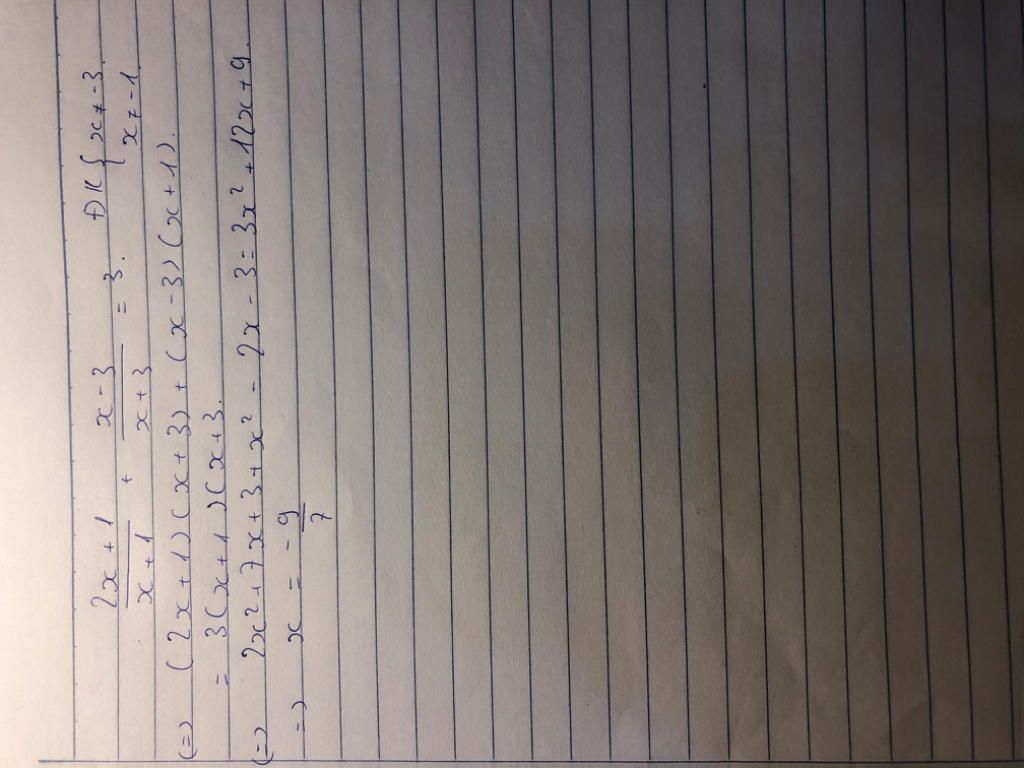 2x + 1 / x + 1 + x - 3 / x + 3 = 3. ĐK { x ≠ -3. x ≠ -1.
(=) (2x + 1)(x + 3) + (x - 3)(x + 1).
= 3(x + 1)(x + 3.
(=) 2x² + 7x + 3 + x² - 2x - 3 = 3x² + 12x + 9.
=) x = - 9 / 7